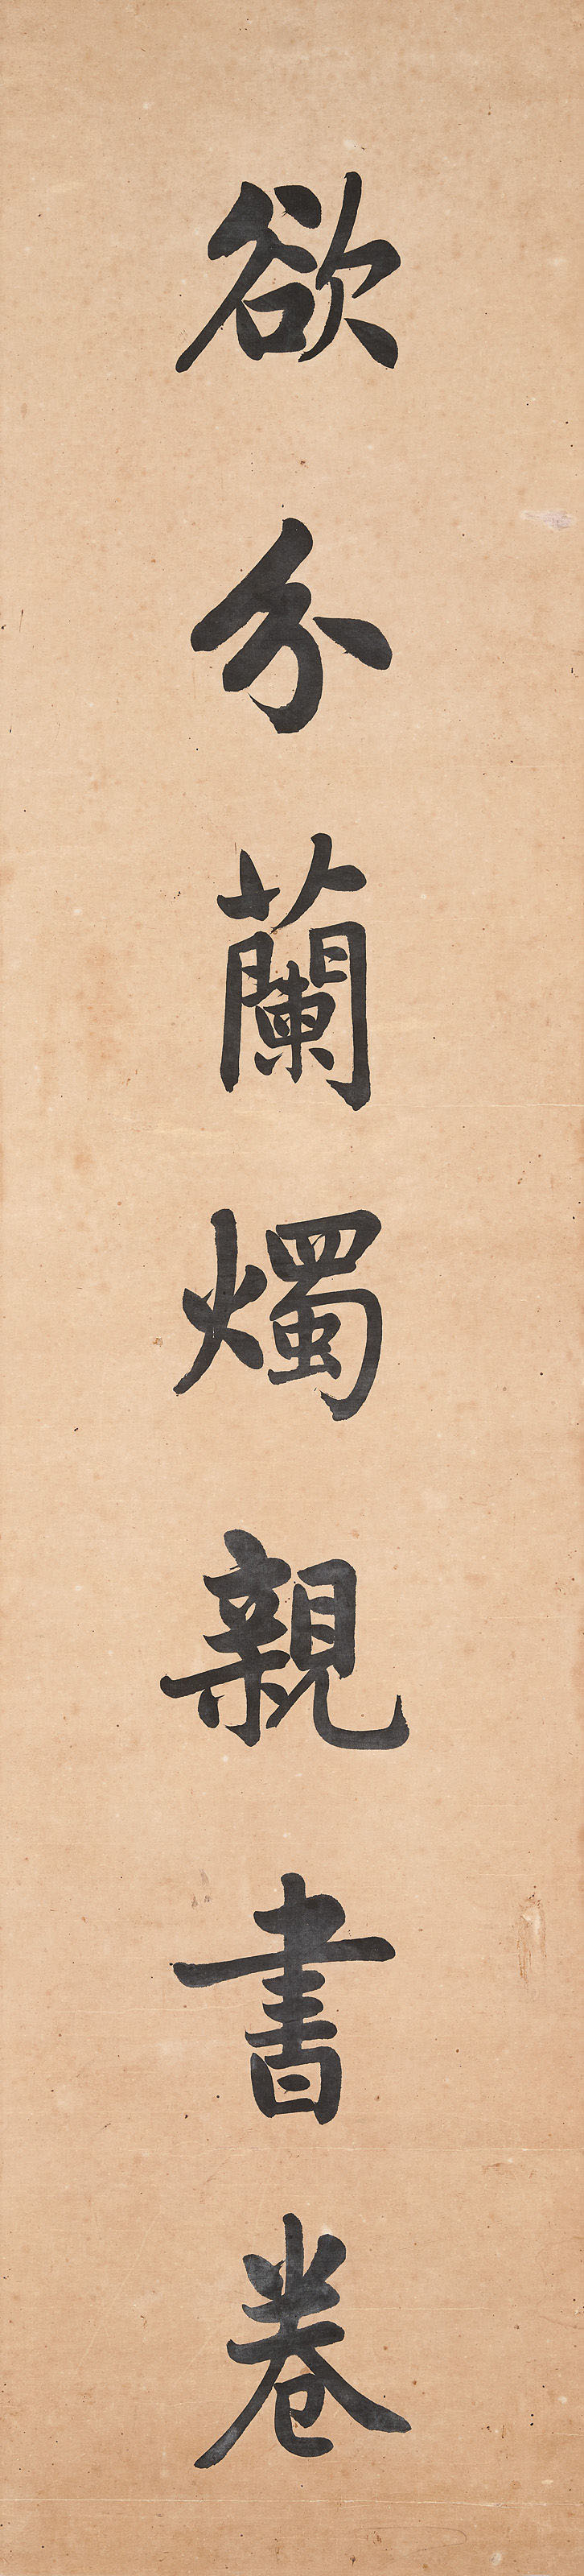 欲分蘭燭親書卷